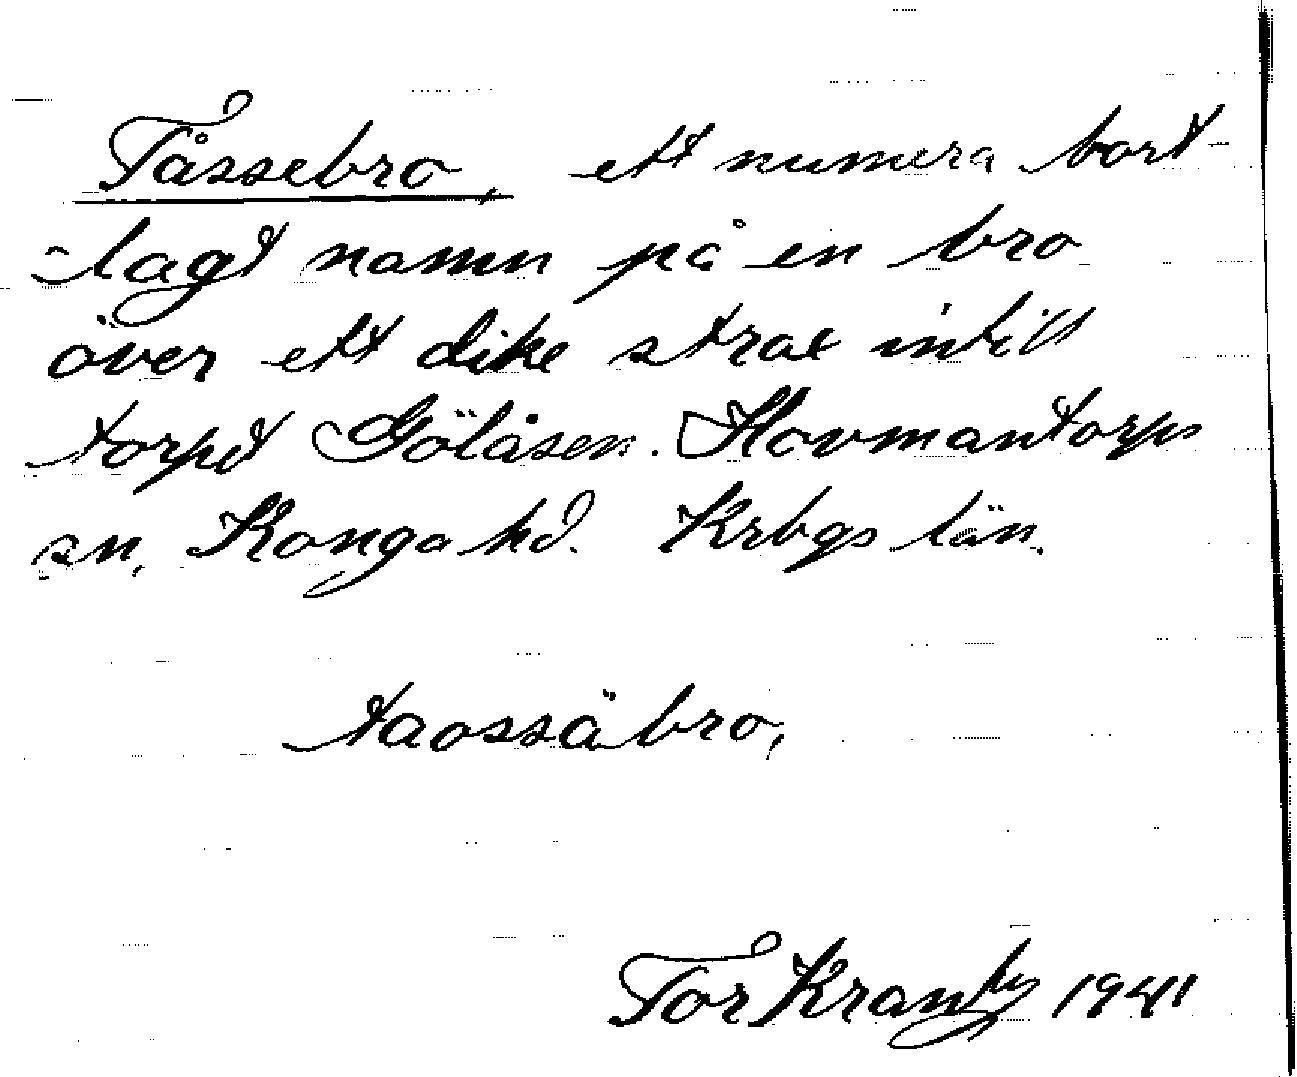 Tåssebro, ett numera bort-
-lagt namn på en bro
över ett dike strax intill
torpet Gölåsen. Hovmantorps
sn, Konga hd. Krbgs län.
taossäbro,
Tor Krantz 1941